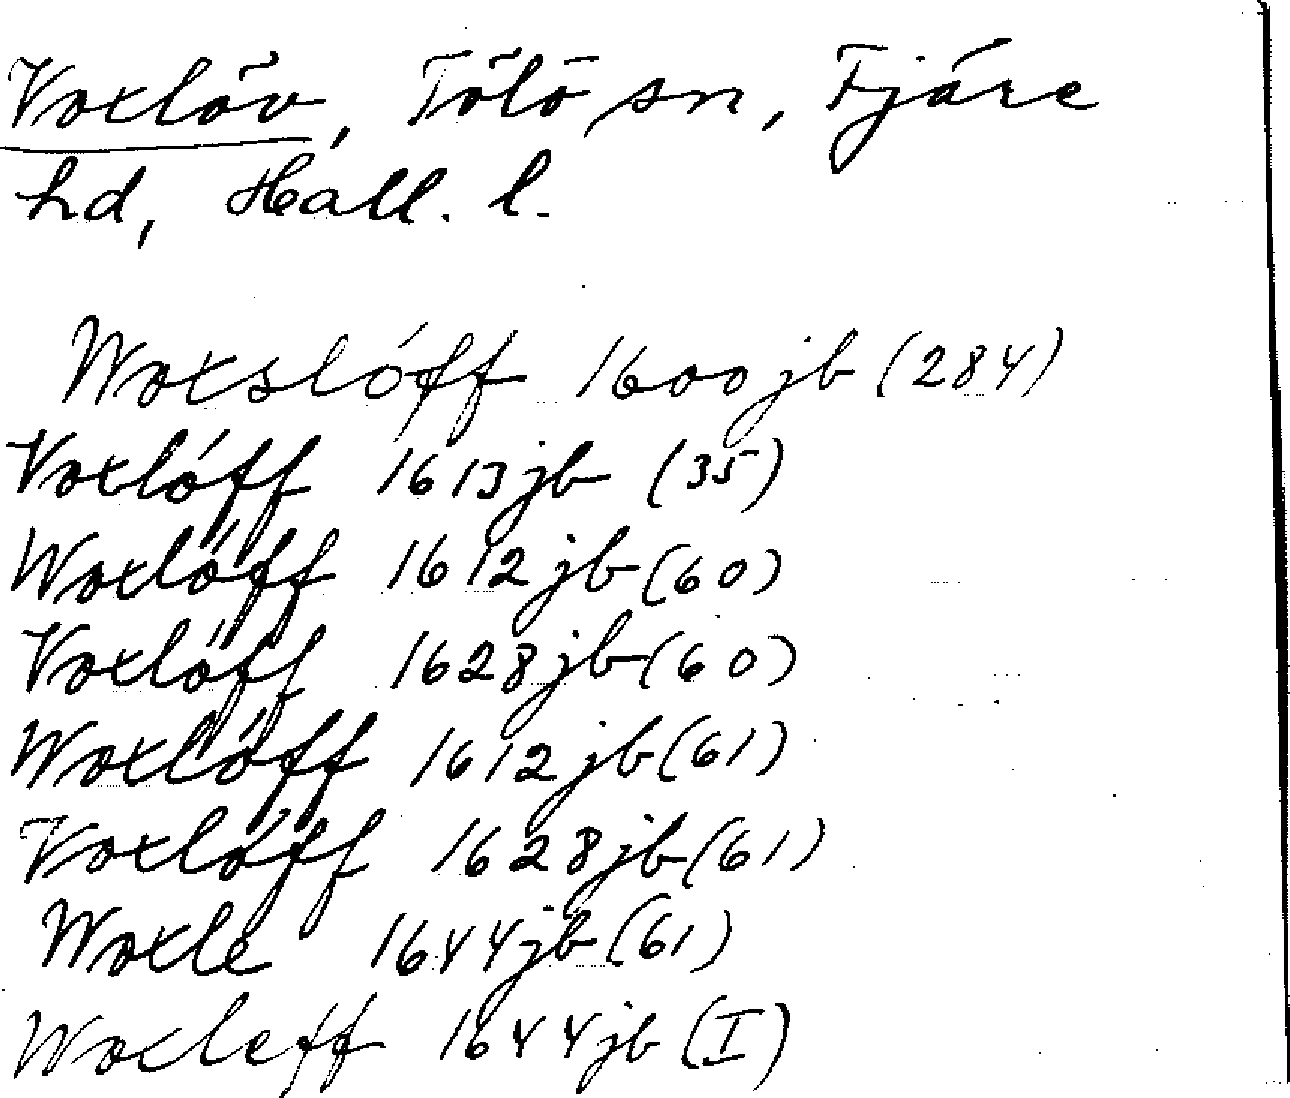 Voxlöv, Tölö sn, Fjäre
hd, Hall. l.
Woxslóff 1600 jb (284)
Voxlóff 1613 jb (35)
Woxlóff 1612 jb (60)
Voxlóff 1628 jb (60)
Woxlóff 1612 jb (61)
Voxlóff 1628 jb (61)
Woxle 1644 jb (61)
Woxleff 1644 jb (I)